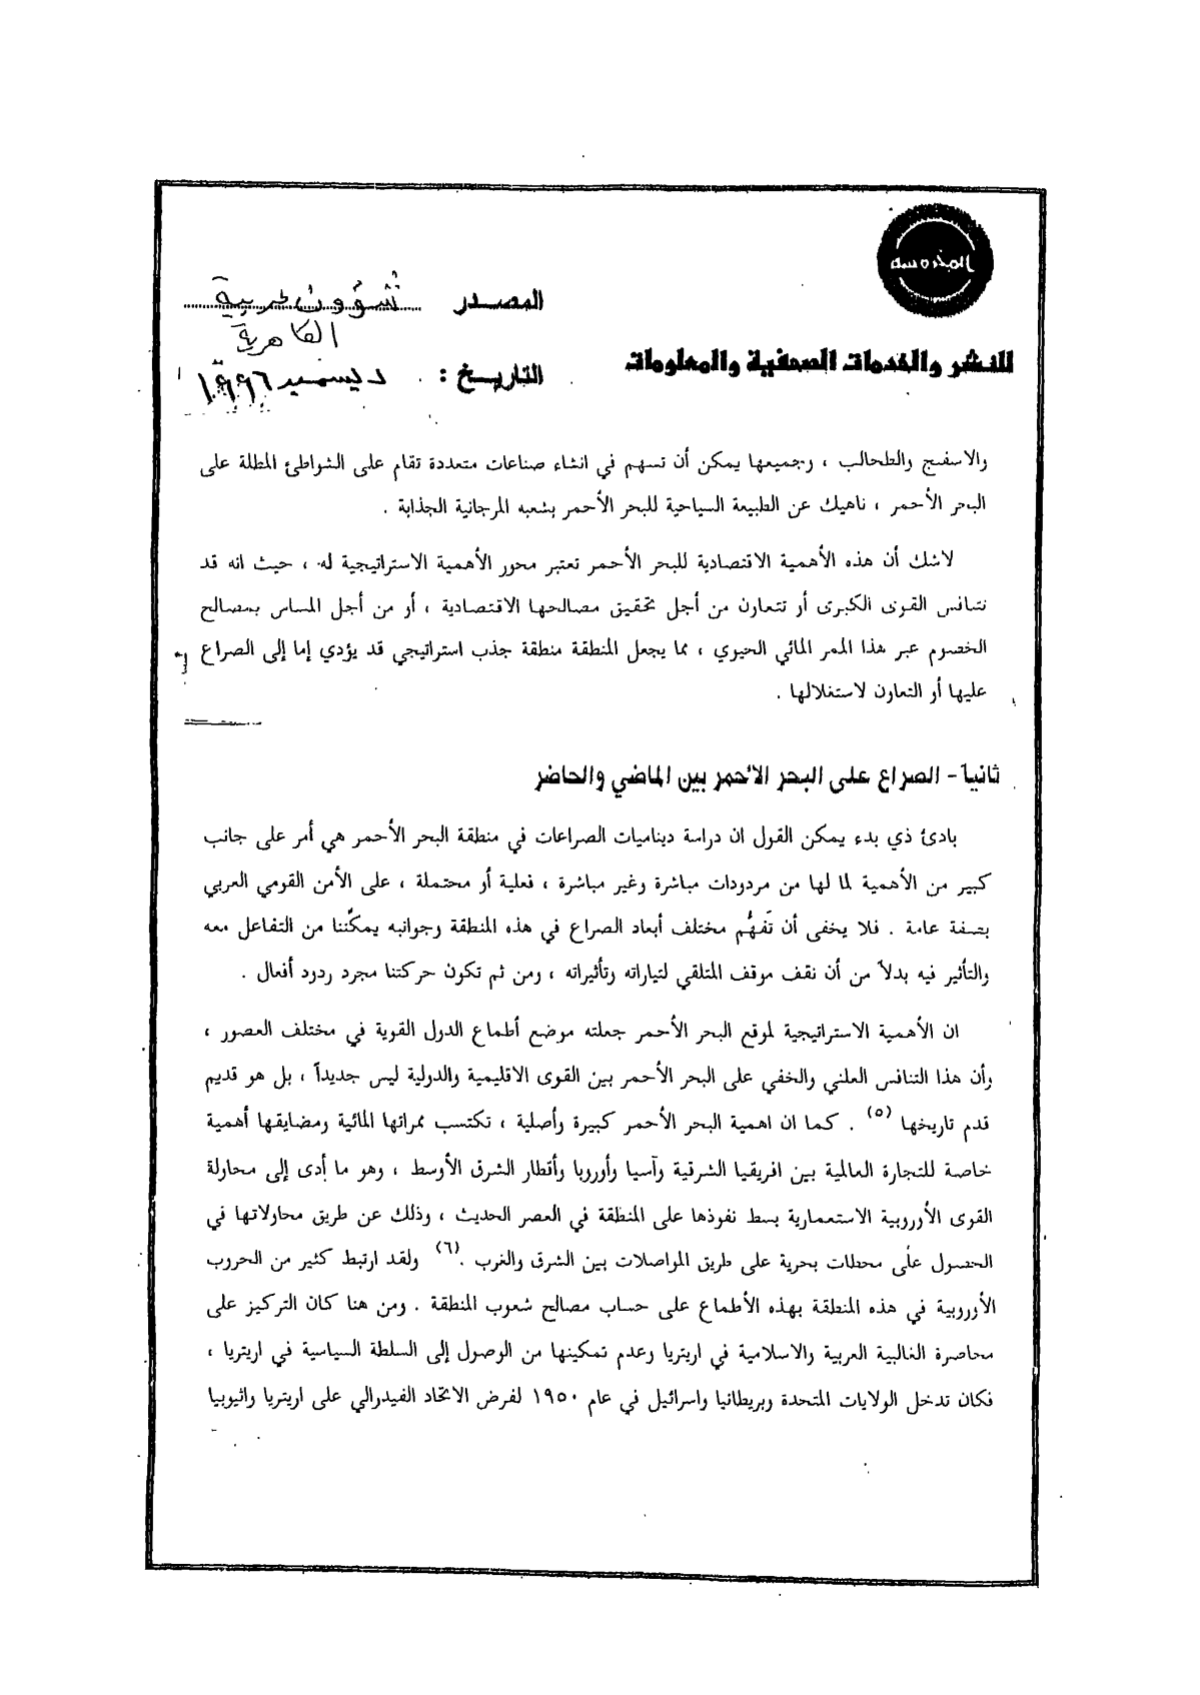 المحروسة
المصدر شؤون عربية
القاهرة
للنشر والخدمات الصحفية والمعلومات
التاريخ : ديسمبر ١٩٩٦
والاسفنج والطحالب ، وجميعها يمكن أن تسهم في انشاء صناعات متعددة تقام على الشواطئ المطلة على
البحر الأحمر ، ناهيك عن الطبيعة السياحية للبحر الأحمر بشعبه المرجانية الجذابة .
لاشك أن هذه الأهمية الاقتصادية للبحر الأحمر تعتبر محور الأهمية الاستراتيجية له ، حيث انه قد
تتنافس القوى الكبرى أو تتعاون من أجل تحقيق مصالحها الاقتصادية ، أو من أجل المساس بمصالح
الخصوم عبر هذا الممر المائي الحيوي ، مما يجعل المنطقة منطقة جذب استراتيجي قد يؤدي إما إلى الصراع
عليها أو التعاون لاستغلالها .
ثانياً - الصراع على البحر الأحمر بين الماضي والحاضر
بادئ ذي بدء يمكن القول ان دراسة ديناميات الصراعات في منطقة البحر الأحمر هي أمر على جانب
كبير من الأهمية لما لها من مردودات مباشرة وغير مباشرة ، فعلية أو محتملة ، على الأمن القومي العربي
بصفة عامة . فلا يخفى أن تَفهُّم مختلف أبعاد الصراع في هذه المنطقة وجوانبه يمكّننا من التفاعل معه
والتأثير فيه بدلاً من أن نقف موقف المتلقي لتياراته وتأثيراته ، ومن ثم تكون حركتنا مجرد ردود أفعال .
ان الأهمية الاستراتيجية لموقع البحر الأحمر جعلته موضع أطماع الدول القوية في مختلف العصور ،
وأن هذا التنافس العلني والخفي على البحر الأحمر بين القوى الاقليمية والدولية ليس جديداً ، بل هو قديم
قدم تاريخها (٥) . كما ان اهمية البحر الأحمر كبيرة وأصلية ، تكتسب ممراتها المائية ومضايقها أهمية
خاصة للتجارة العالمية بين افريقيا الشرقية وآسيا وأوروبا وأقطار الشرق الأوسط ، وهو ما أدى إلى محاولة
القوى الأوروبية الاستعمارية بسط نفوذها على المنطقة في العصر الحديث ، وذلك عن طريق محاولاتها في
الحصول على محطات بحرية على طريق المواصلات بين الشرق والغرب .(٦) ولقد ارتبط كثير من الحروب
الأوروبية في هذه المنطقة بهذه الأطماع على حساب مصالح شعوب المنطقة . ومن هنا كان التركيز على
محاصرة الغالبية العربية والاسلامية في اريتريا وعدم تمكينها من الوصول إلى السلطة السياسية في اريتريا ،
فكان تدخل الولايات المتحدة وبريطانيا واسرائيل في عام ١٩٥٠ لفرض الاتحاد الفيدرالي على اريتريا واثيوبيا